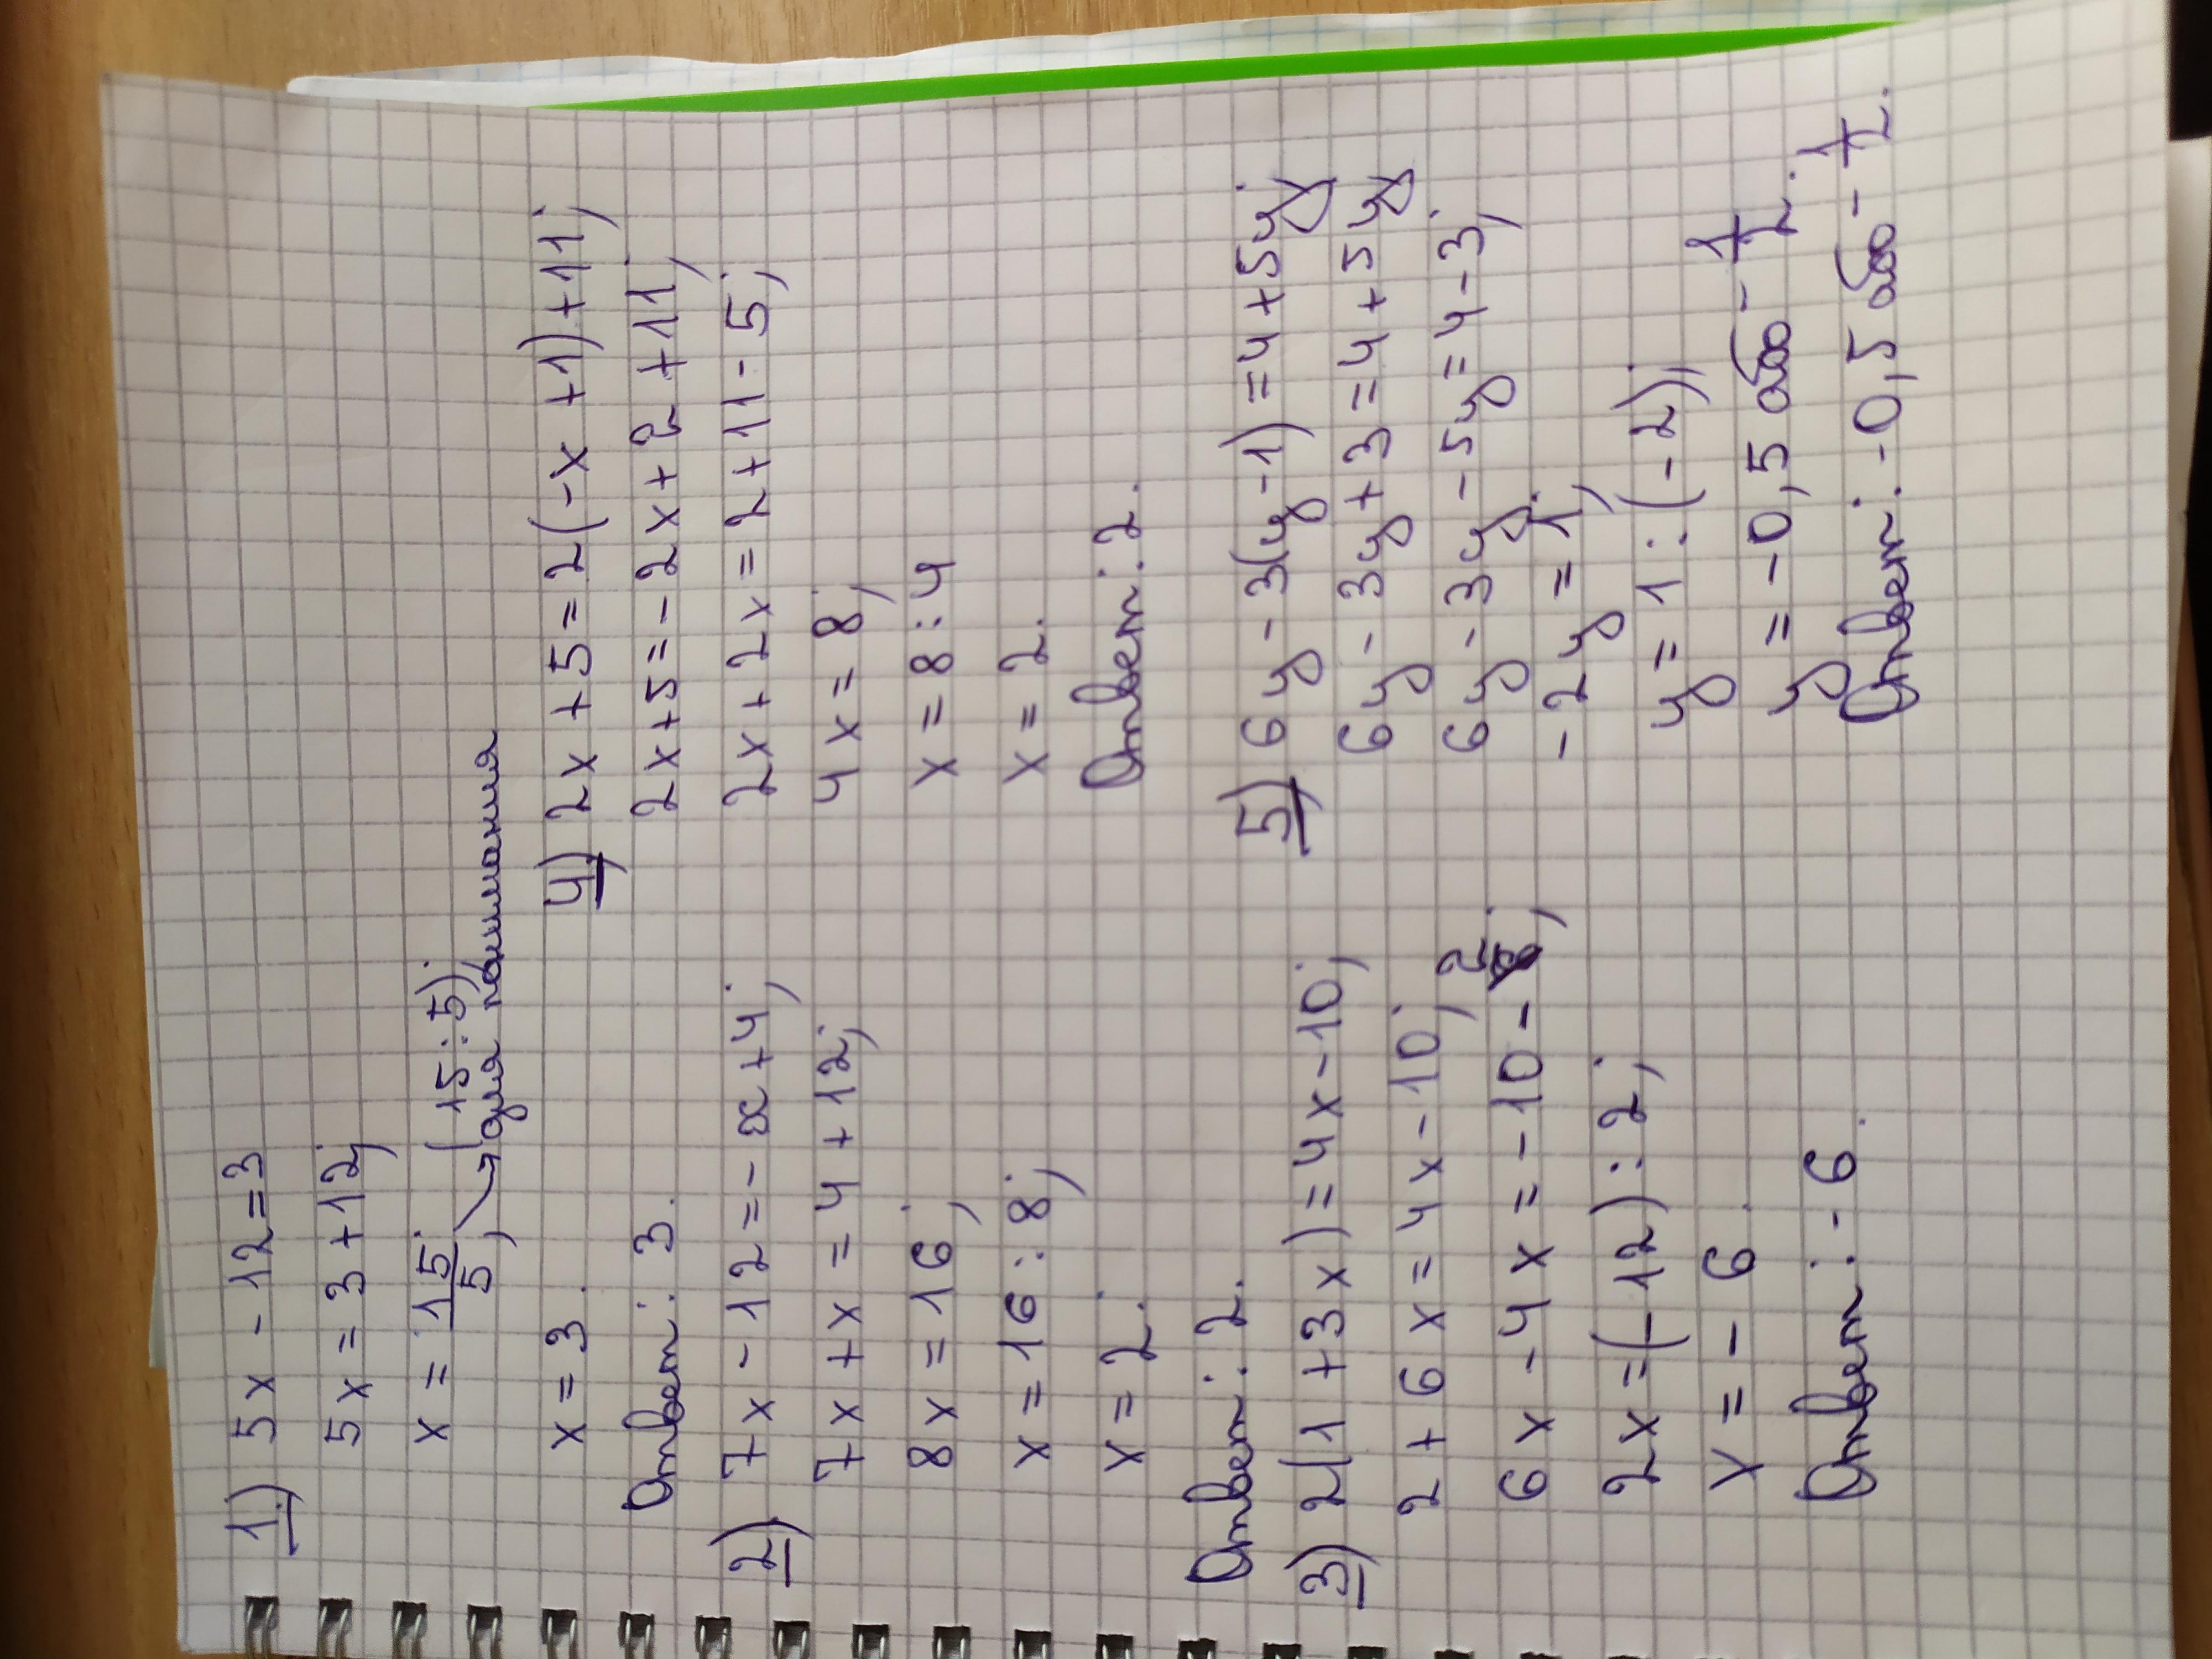 1) 5x - 12 = 3
5x = 3 + 12;
x = 15/5; (15 : 5);
→ для понимания
x = 3.
Ответ: 3.
2) 7x - 12 = - x + 4;
7x + x = 4 + 12;
8x = 16;
x = 16 : 8;
x = 2.
Ответ: 2.
3) 2(1 + 3x) = 4x - 10;
2 + 6x = 4x - 10;
6x - 4x = - 10 - 2;
2x = (- 12) : 2;
x = - 6.
Ответ: - 6.
4) 2x + 5 = 2(-x + 1) + 11;
2x + 5 = - 2x + 2 + 11;
2x + 2x = 2 + 11 - 5;
4x = 8;
x = 8 : 4
x = 2.
Ответ: 2.
5) 6y - 3(y - 1) = 4 + 5y;
6y - 3y + 3 = 4 + 5y;
6y - 3y - 5y = 4 - 3;
- 2y = 1;
y = 1 : (- 2);
y = - 0,5 або - 1/2.
Ответ: - 0,5 або - 1/2.